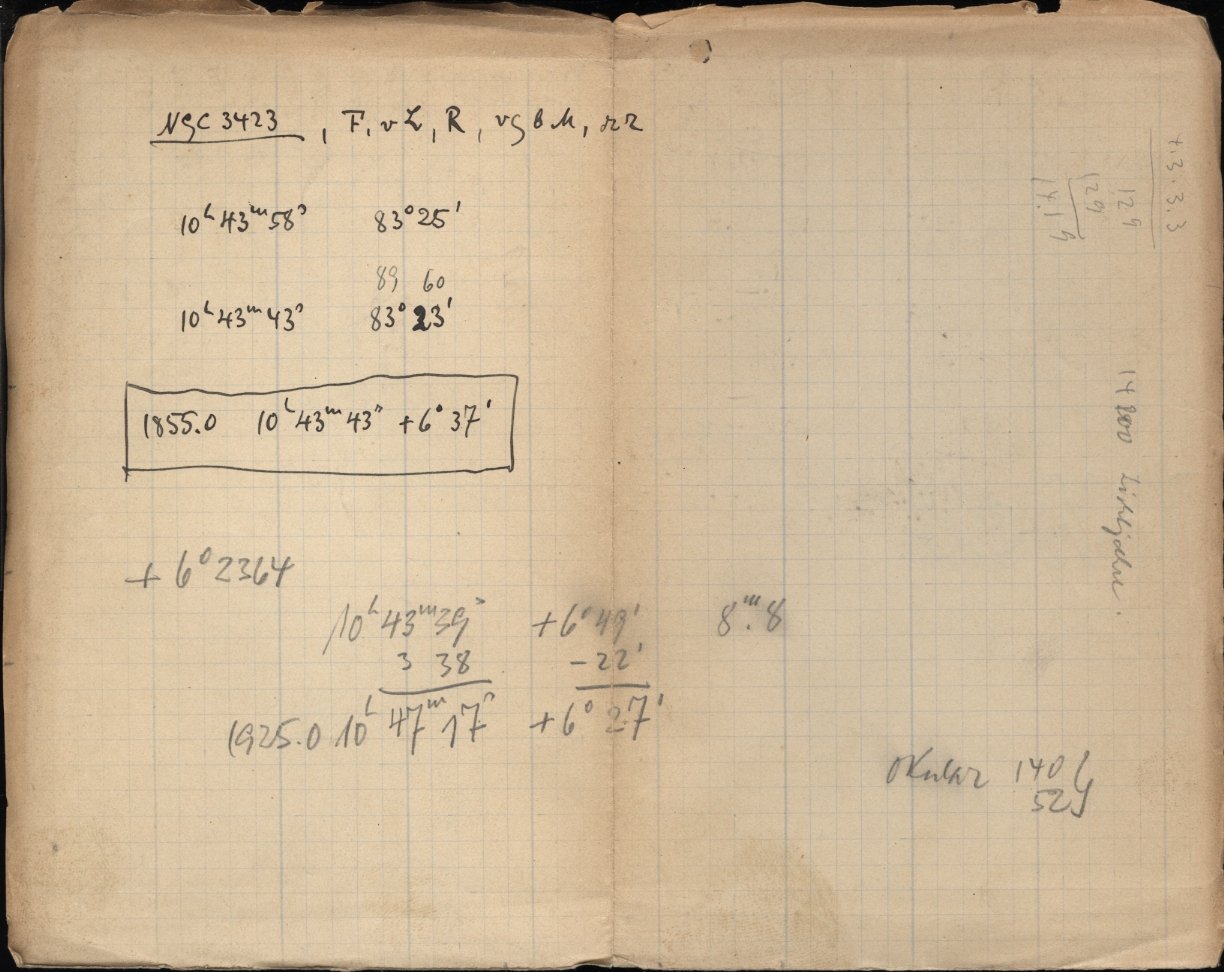 NGC 3423, F, vL, R, vgbM, rr
10h 43m 58s 83° 25'
89 60
10h 43m 43s 83° 23'
1855.0 10h 43m 43s +6° 37'
+ 6° 2364
10h 43m 39s +6° 49' 8m.8
3 38 -22'
1925.0 10h 47m 17s +6° 27'
Okular 140
52
+.3.3.3
129
129
14.19
14 Lichtjahre.